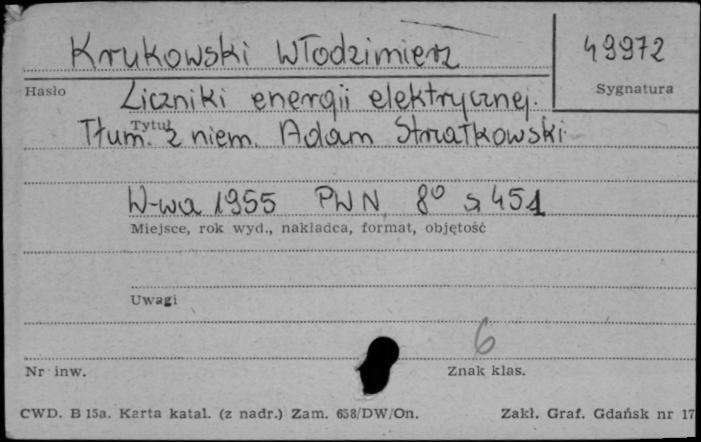 Krukowski Włodzimierz
49972
Hasło
Sygnatura
Liczniki energii elektrycznej.
Tytuł
Tłum. z niem. Adam Strzałkowski
W-wa 1955 PWN 8° s 451
Miejsce, rok wyd., nakładca, format, objętość
Uwagi
6
Nr inw.
Znak klas.
CWD. B 15a. Karta katal. (z nadr.) Zam. 658/DW/On.
Zakł. Graf. Gdańsk nr 17